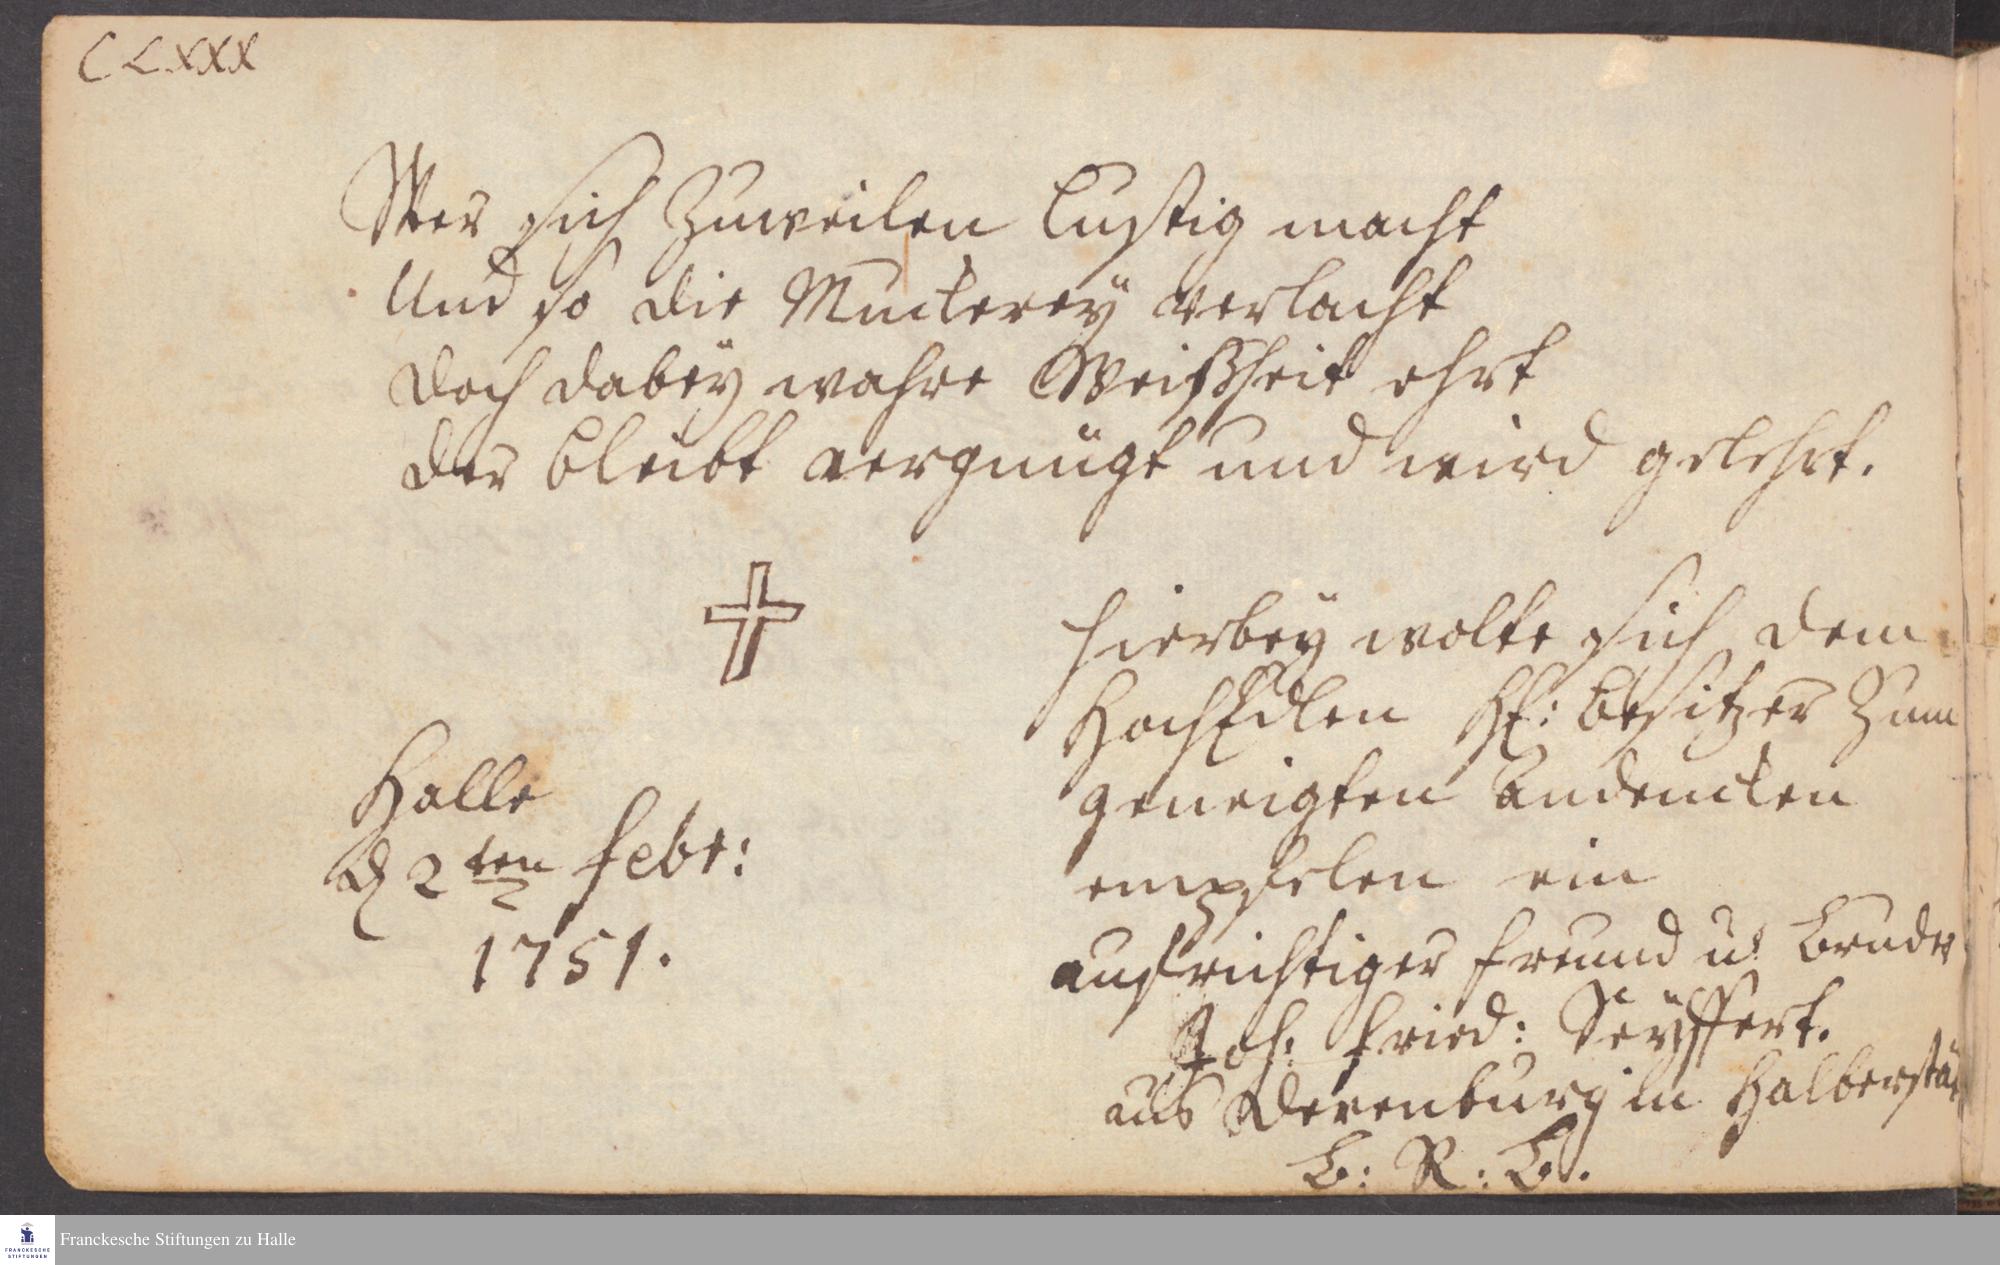 CLXXX
Wer sich Zuweilen Lustig macht
Und so die Muckerey verlacht
doch dabey wahre Weißheit ehrt
der bleibt vergnügt und wird gelehrt.
Halle
d 2ten Febr:
1751.
hierbey wolte sich dem
HochEdlen HE: Besitzer Zum
geneigten Andencken
empfelen ein
aufrichtiger Freund u. Bruder
Joh: Fried: Seÿffert.
aus Derenburg im Halberstäd
B: R: B.
FRANCKESCHE
STIFTUNGEN
Franckesche Stiftungen zu Halle